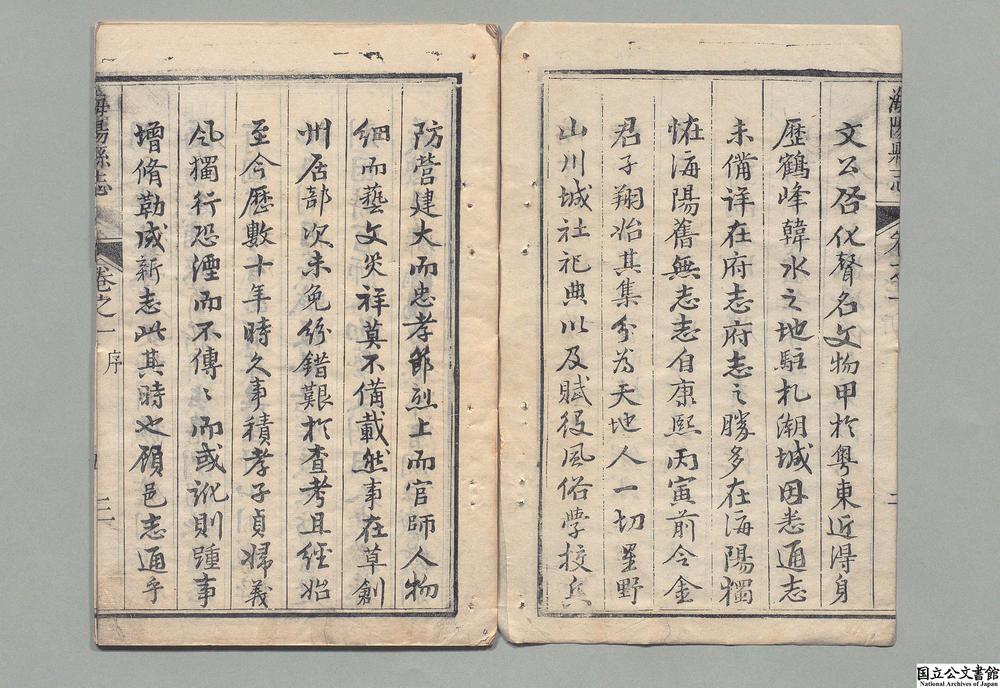 海陽縣志
文公啓化聲名文物甲於粤東近得身
歷鶴峰韓水之地駐札潮城因悉通志
未備详在府志府志之勝多在海陽獨
恠海陽舊無志志自康熙丙寅前令金
君子翔冶其集分為天地人一切星野
山川城社祀典以及賦役風俗學校兵
防營建大而忠孝節烈上而官師人物
细而藝文災祥莫不備載然事在草創
州居部次未免紛錯艱於查考且經始
至今歷數十年時久事積孝子貞婦義
風獨行恐湮而不傳〻而或訛則踵事
增脩勒成新志此其時也顧邑志通乎
海陽縣志
卷之一
序
国立公文書館
National Archives of Japan